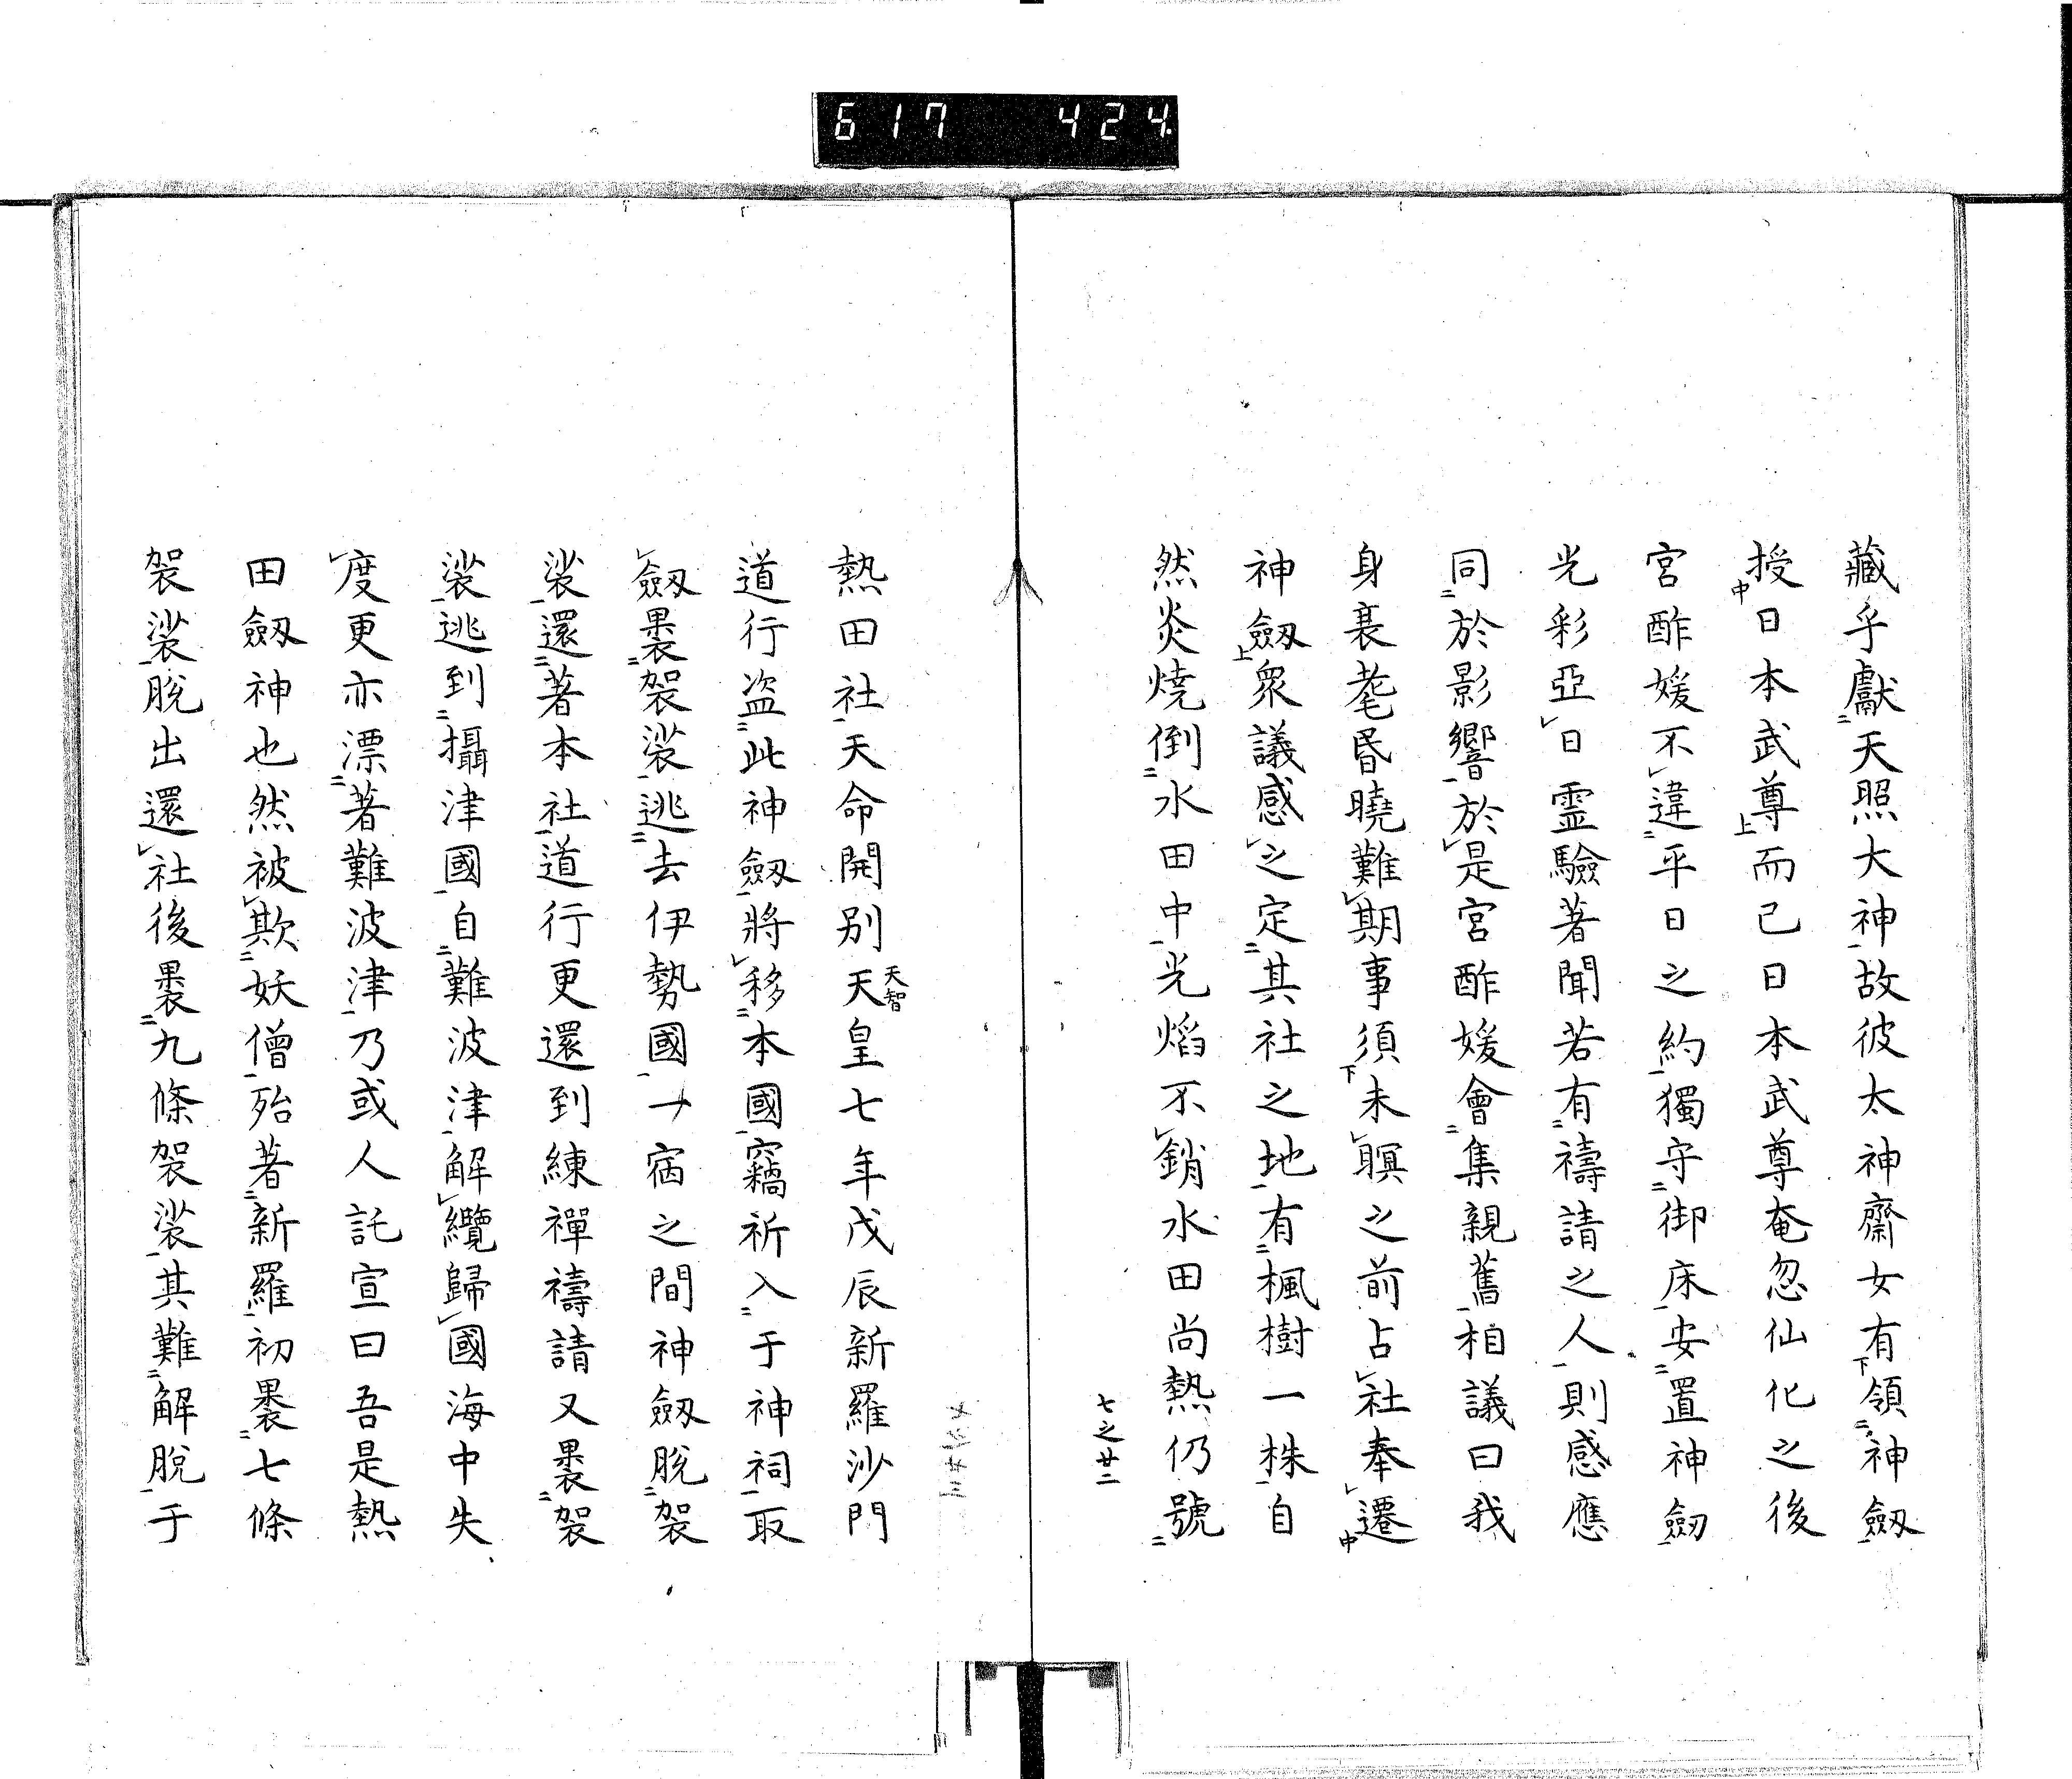 617 424
藏乎獻天照大神故彼太神齋女有領神劔
授日本武尊而已日本武尊奄忽仙化之後
宮酢媛不違平日之約獨守御床安置神劔
光彩亞日霊驗著聞若有禱請之人則感應
同於影響於是宮酢媛會集親舊相議曰我
身衰耄昏曉難期事須未瞑之前占社奉遷
神劔衆議感之定其社之地有楓樹一株自
然炎焼倒水田中光焰不銷水田尚熱仍號
七之廿二
熱田社天命開別天皇七年戊辰新羅沙門
天智
道行盗此神劔將移本國竊祈入于神祠取
劔褁袈裟逃去伊勢國一宿之間神劔脱袈
裟還著本社道行更還到練禪禱請又褁袈
裟逃到攝津國自難波津解纜歸國海中失
度更亦漂著難波津乃或人託宣曰吾是熱
田劔神也然被欺妖僧殆著新羅初褁七條
袈裟脱出還社後褁九條袈裟其難解脱于